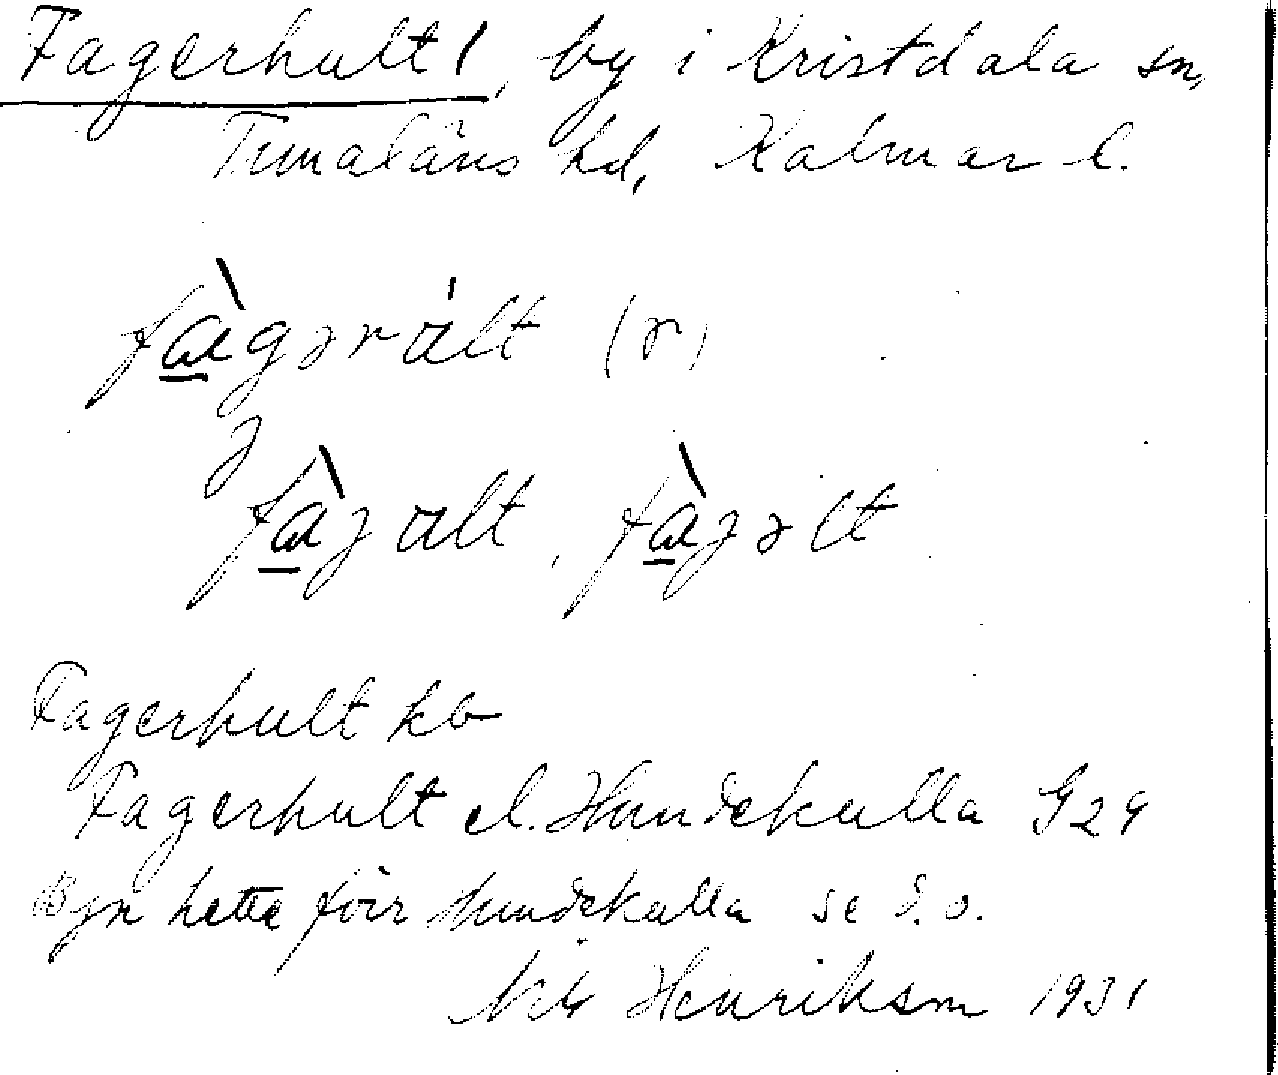 Fagerhult 1, by i Kristdala sn,
Tunaläns hd, Kalmar l.
fàgərált (r)
fàgalt, fàgəlt
Fagerhult kb
Fagerhult el. Hundekulla G29
Byn hette förr Hundekulla se d.o.
Nils Henriksson 1931